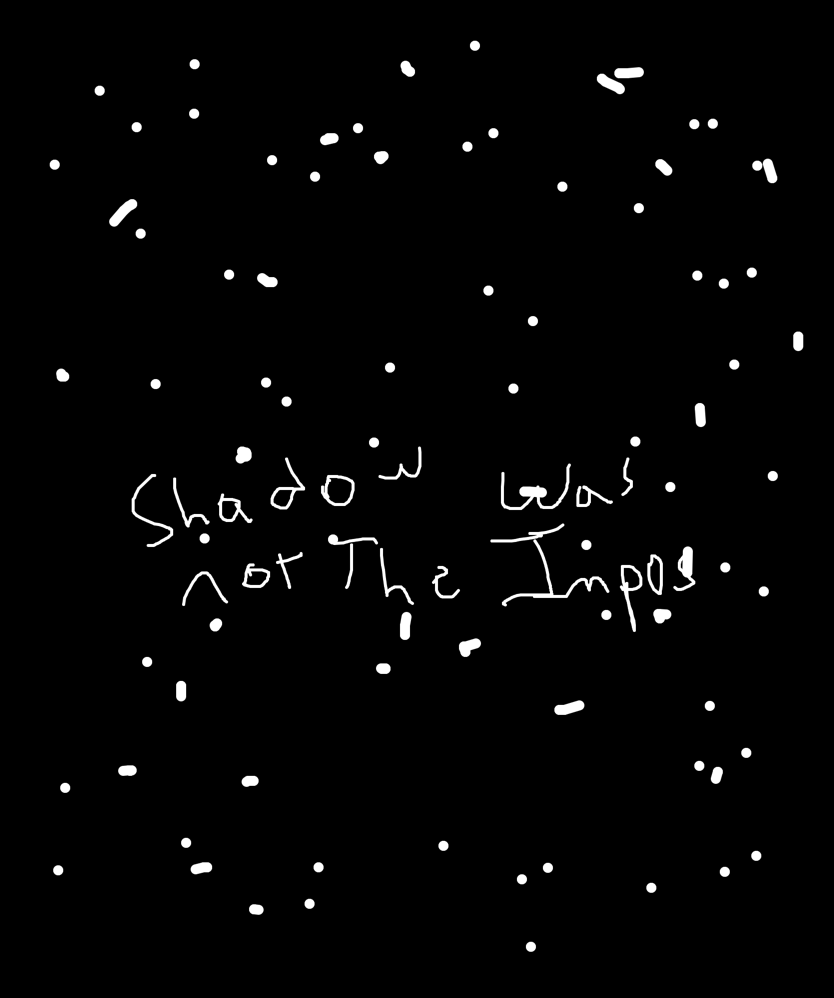 Shadow was
not The Impos